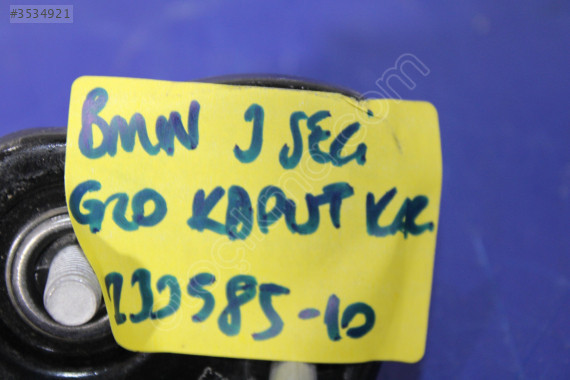 #3534921
BMW 3 SERİ
G20 KAPUT KİL
233585-10